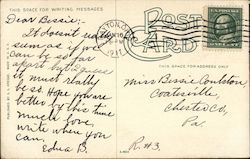 THIS SPACE FOR WRITING MESSAGES
Dear Bessie:-
It doesn't
sum as if we
can be so far
apart
it must really
be so. Hope you are
better by this time
much love,
write when you
can. Edna B.
POST
CARD
THIS SPACE FOR ADDRESS ONLY
Miss Bessie Coulston
Coatesville,
Chester Co,
Pa.
R. #3.